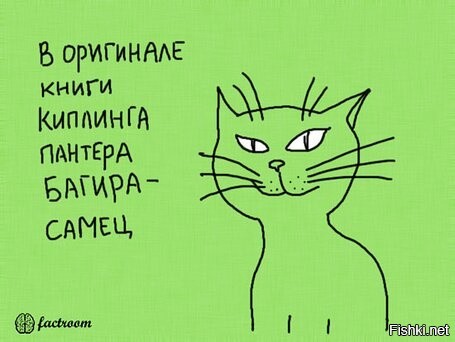 В ОРИГИНАЛЕ
КНИГИ
КИПЛИНГА
ПАНТЕРА
БАГИРА –
САМЕЦ
factroom
Fishki.net